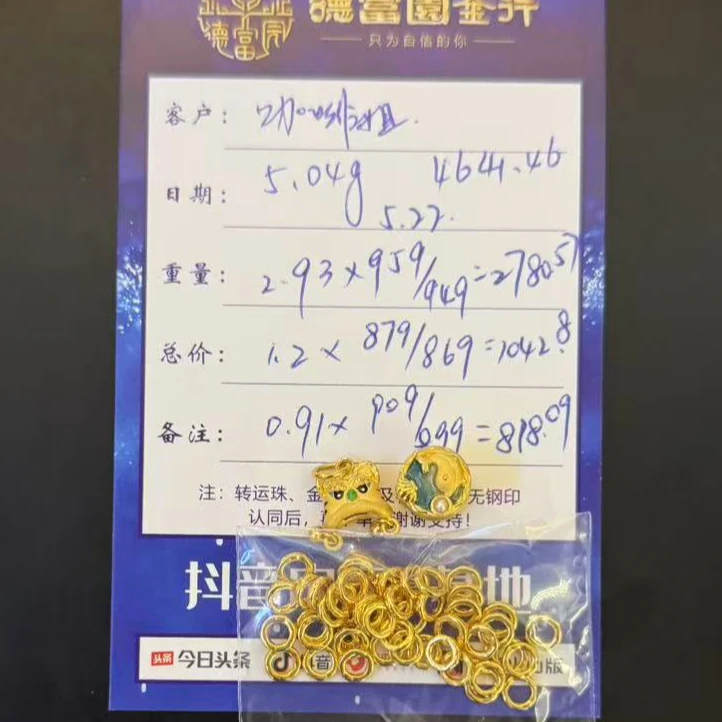 德富園金行
德富
只为自信的你
客户:
日期: 5.04g 4641.46
5.27.
重量: 2.93×959/949=2780.57
总价: 1.2× 879/869=1042.8
备注: 0.91× 909/899=818.09
注: 转运珠、金 及 无钢印
认同后, 谢谢支持!
抖音 地
头条 今日头条 音 版